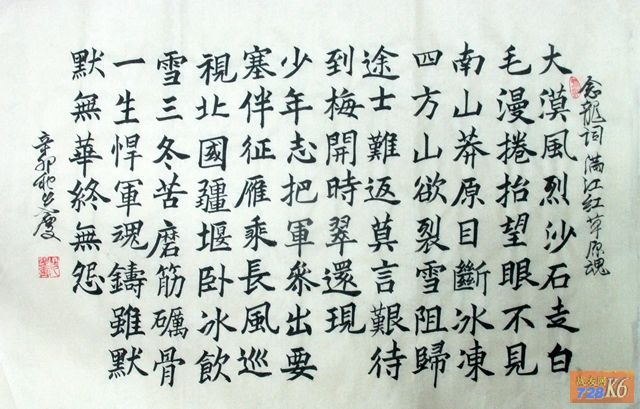 念龍詞 滿江紅 草原魂
大漠風烈沙石走白
毛漫捲抬望眼不見
南山莽原目斷冰凍
四方山欲裂雪阻歸
途士難返莫言艱待
到梅開時翠還現
少年志把軍參出要
塞伴征雁乘長風巡
視北國疆堰臥冰飲
雪三冬苦磨筋礪骨
一生悍軍魂鑄雖默
默無華終無怨
辛卯
战友网
728 K6